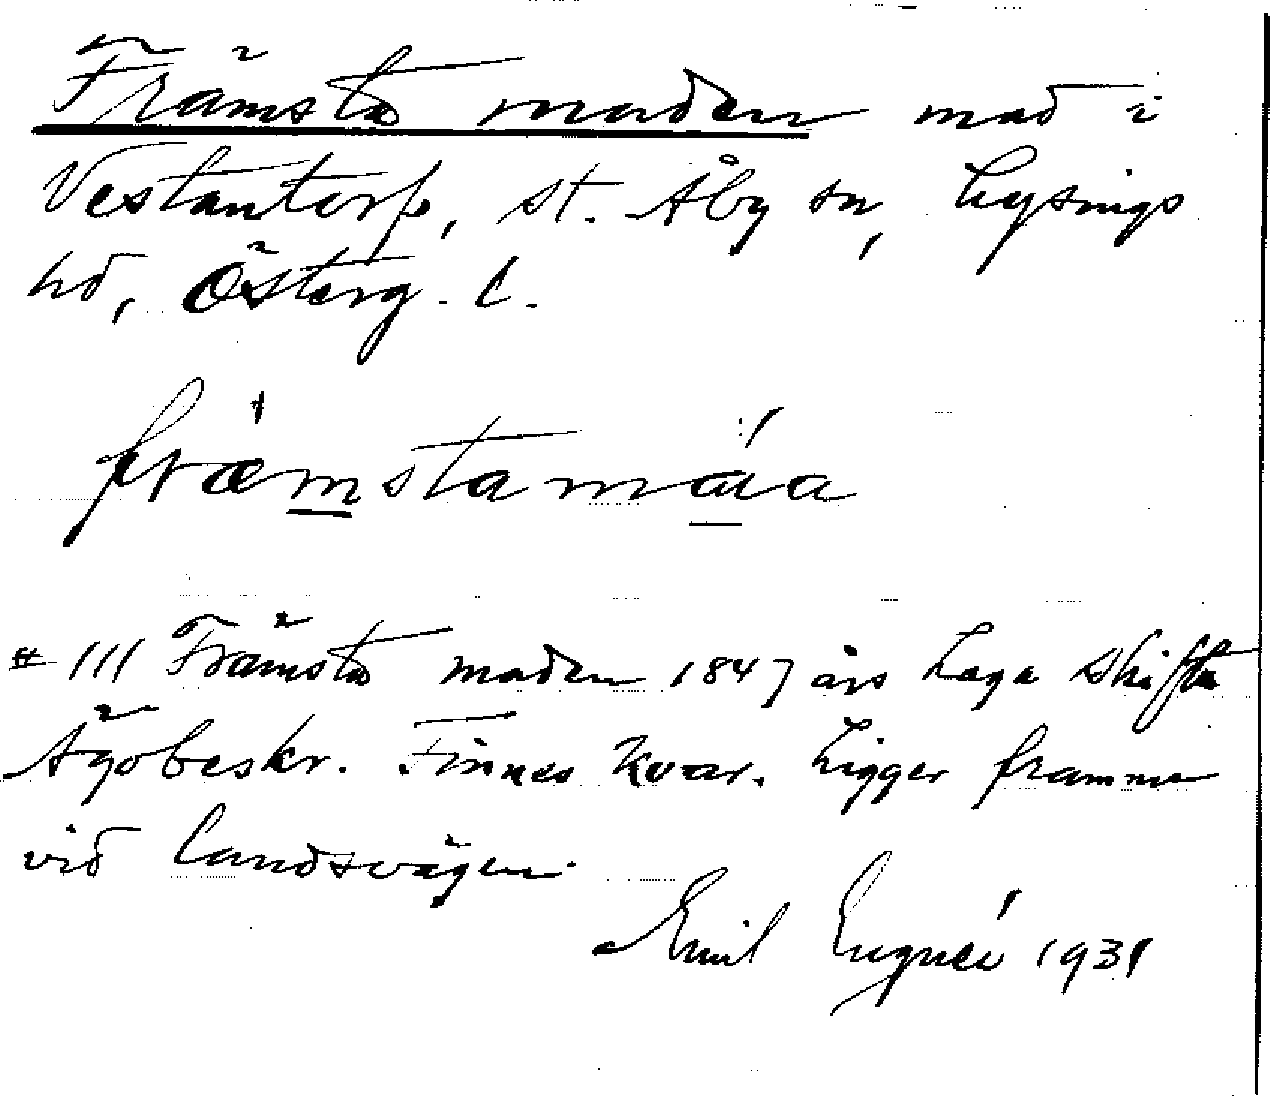 Främsta maden mad i
Vestantorp, st. Åby sn, Lysings
hd, Österg. l.
främstamáa
# 111 Främsta maden 1847 års Laga skifte
Ägobeskr. Finnes kvar. Ligger framme
vid landsvägen.
Emil Lignéi 1931